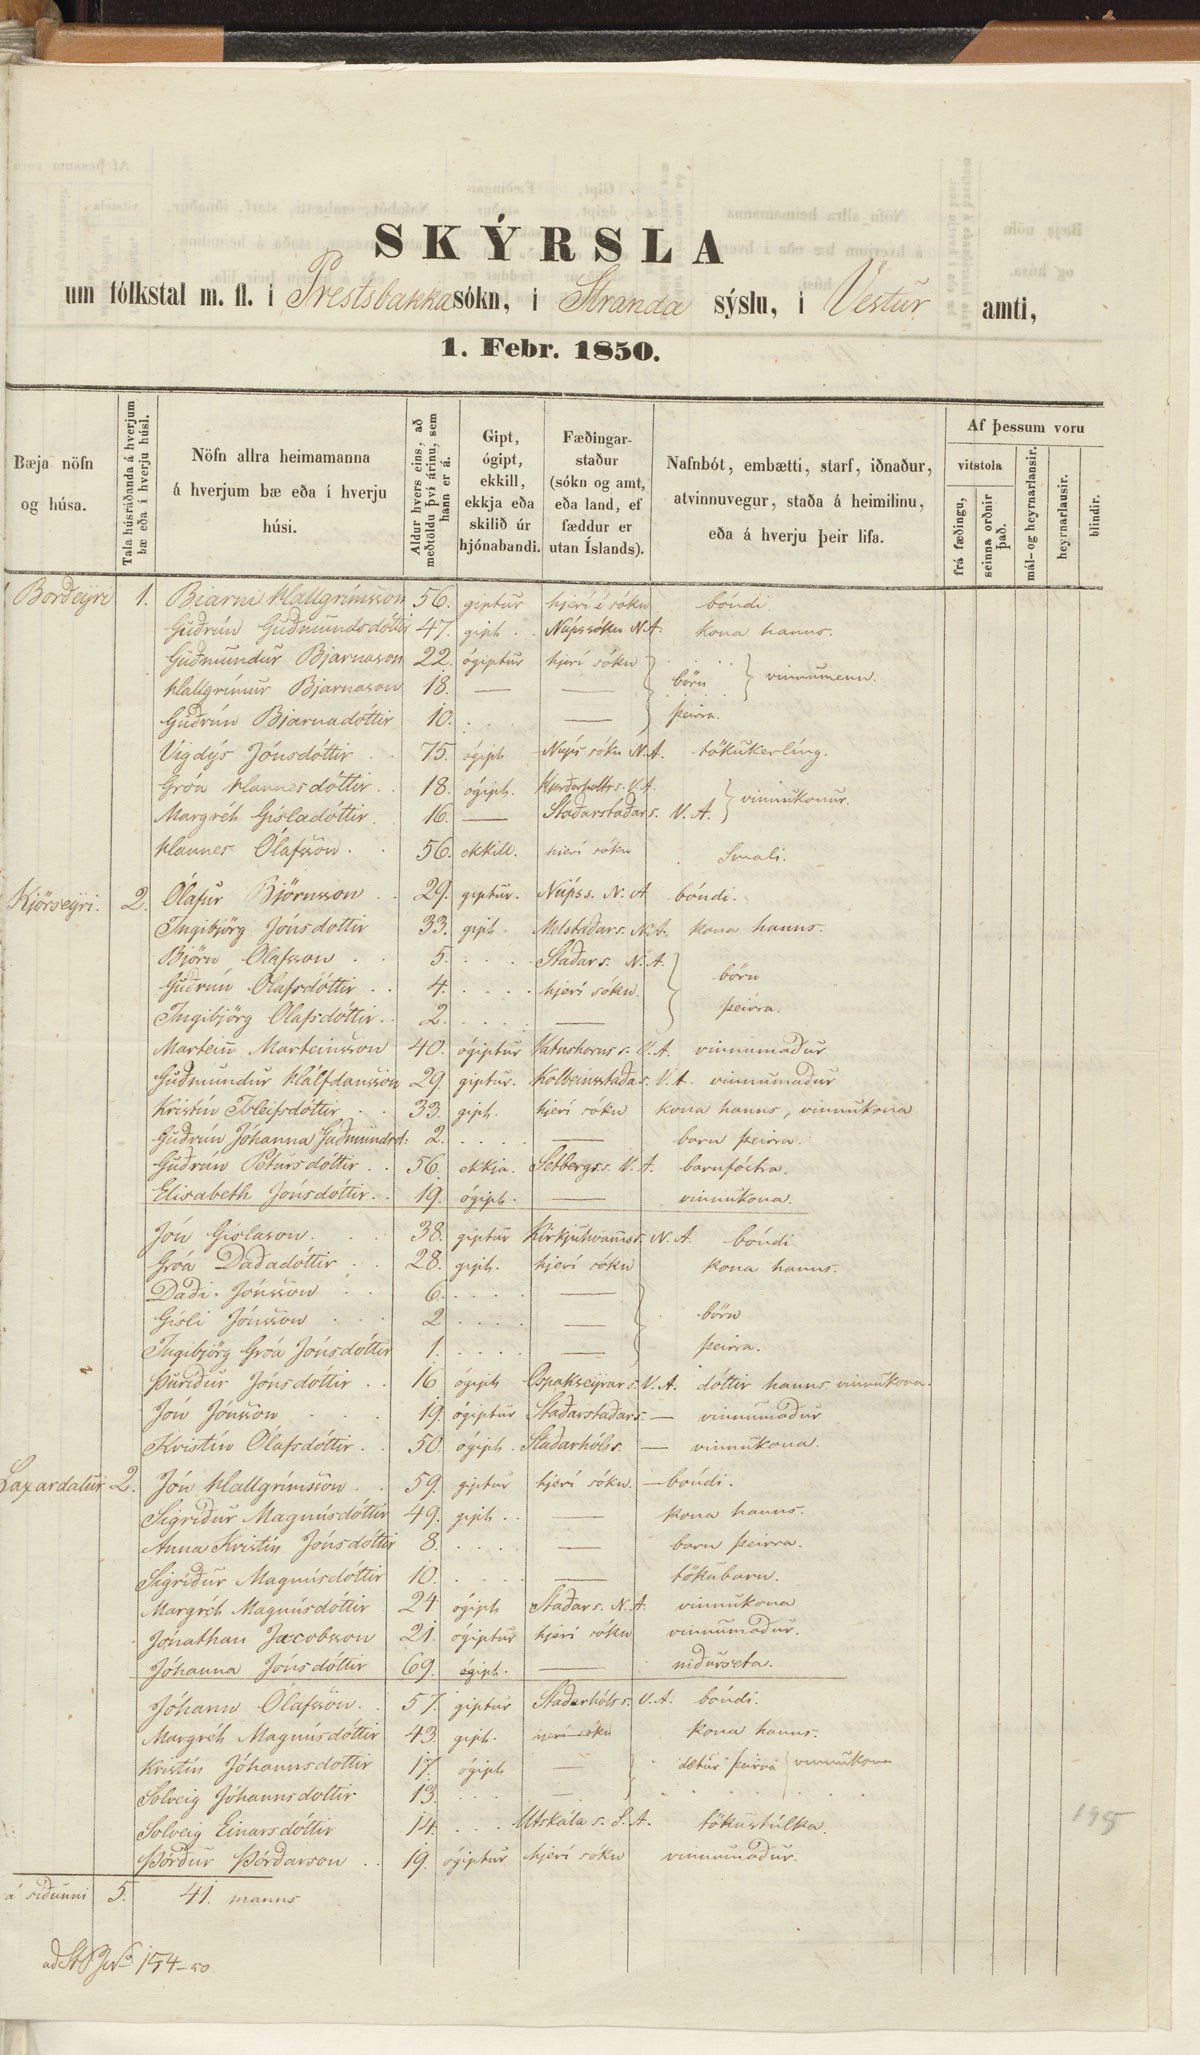 SKÝRSLA
um fólkstal m. fl. í Prestsbakkasókn, í Stranda sýslu, í Vestur amti,
1. Febr. 1850.
Bæja nöfn og húsa.
Tala húsráðanda á hverjum bæ eða í hverju húsi.
Nöfn allra heimamanna á hverjum bæ eða í hverju húsi.
Aldur hvers eins, að meðtöldu því árinu, sem hann er á.
Gipt, ógipt, ekkill, ekkja eða skilið úr hjónabandi.
Fæðingar-staður (sókn og amt, eða land, ef fæddur er utan Íslands).
Nafnbót, embætti, starf, iðnaður, atvinnuvegur, staða á heimilinu, eða á hverju þeir lifa.
Af þessum voru
vitstola
frá fæðingu,
seinna orðnir það.
mál- og heyrnarlausir.
heyrnarlausir.
blindir.
Borðeyri 1. Bjarni Hallgrímsson 56. giptur hjer í sókn bóndi
Guðrún Guðmundsdóttir 47. gipt. Núpssókn N.A. kona hanns.
Guðmundur Bjarnason 22. ógiptur hjer í sókn
Hallgrímur Bjarnason 18. — — börn vinnumenn.
Guðrún Bjarnadóttir 10. — þeirra.
Vigdýs Jónsdóttir 75. ógipt Núps sókn N.A. tökukerlíng.
Gróa Hannesdóttir 18. ógipt. Hjarðarholts s. V.A.
Margrét Gísladóttir 16. — Staðarstaðar s. V.A. vinnukonur.
Hannes Ólafsson 56. ekkill. hjer í sókn Smali.
Kjörseyri. 2. Ólafur Björnsson 29. giptur. Núps s. N.A bóndi.
Ingibjörg Jónsdóttir 33. gipt. Melstaðar s. N.A. kona hanns.
Björn Ólafsson 5. Staðar s. N.A. börn
Guðrún Ólafsdóttir 4. hjer í sókn.
Ingibjörg Ólafsdóttir 2. — þeirra.
Marteinn Marteinsson 40. ógiptur Vatnshorns s. V.A. vinnumaður
Guðmundur Hálfdansson 29 giptur. Kolbeinsstaða s. V.A. vinnumaður
Kristín Þolleifsdóttir 33. gipt. hjer í sókn kona hanns, vinnukona
Guðrún Jóhanna Guðmundsd: 2. — barn þeirra.
Guðrún Petursdóttir 56. ekkja. Setbergs s. V.A. barnfóstra.
Elisabeth Jónsdóttir 19. ógipt. — vinnukona.
Jón Gíslason. 38. giptur Kirkjuhvamms s. N.A. bóndi
Gróa Daðadóttir 28. gipt. hjer í sókn kona hanns.
Daði Jónsson 6. —
Gísli Jónsson 2 — börn
Ingibjörg Gróa Jónsdóttir 1. — þeirra.
Þuríður Jónsdóttir 16 ógipt Ospakseyrar s. V.A. dóttir hanns vinnukona.
Jón Jónsson 19. ógiptur Staðarstaðar s. — vinnumaður
Kristín Ólafsdóttir 50. ógipt. Staðarhóls s. — vinnukona.
Laxardalur 2. Jón Hallgrímsson 59. giptur hjer í sókn. — bóndi.
Sigríður Magnúsdóttir 49. gipt. — kona hanns.
Anna Kristín Jónsdóttir 8. — barn þeirra.
Sigríður Magnúsdóttir 10. — tökubarn.
Margrét Magnúsdóttir 24 ógipt Staðar s. N.A. vinnukona
Jónathan Jacobsson 21. ógiptur hjer í sókn vinnumaður.
Jóhanna Jónsdóttir 69. ógipt. — niðurseta.
Jóhann Ólafsson. 57. giptur Staðarhóls s. V.A. bóndi.
Margrét Magnúsdóttir 43. gipt. hjer í sókn kona hanns.
Kristín Jóhannsdóttir 17. ógipt — dætur þeirra vinnukona
Solveig Jóhannsdóttir 13. —
Solveig Einarsdóttir 14. Utskála s. S.A. tökustúlka.
Þórður Þórðarson 19. ógiptur hjer í sókn vinnumaður.
á síðunni 5. 41. manns
154-50
195